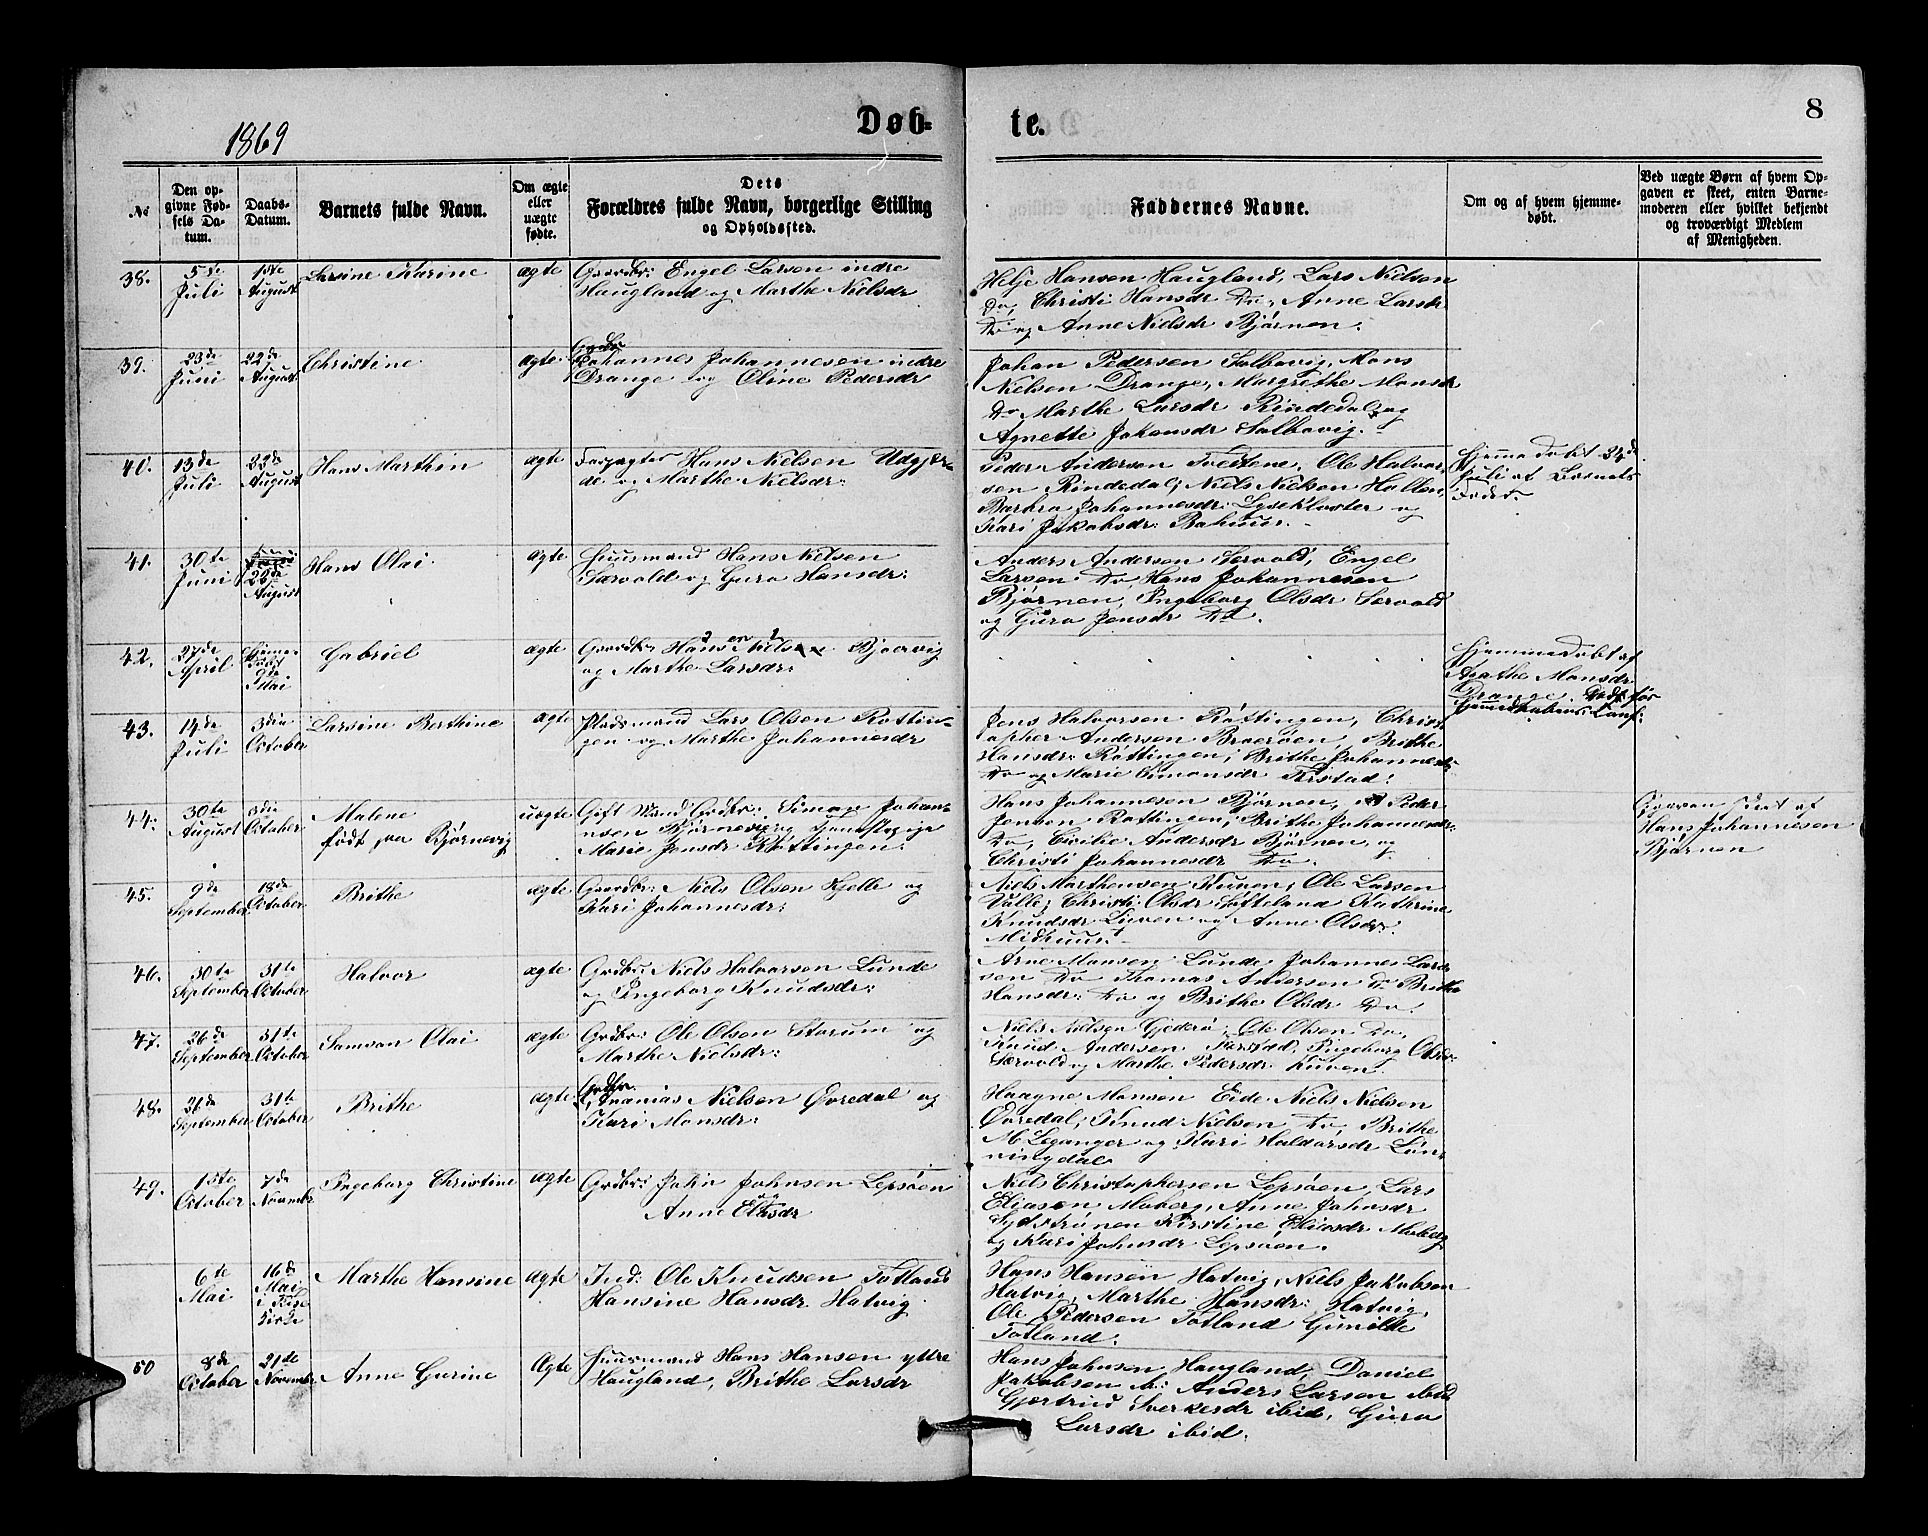 1869
Døb-
te.
8
No
Den op-
givne Fød-
sels Da-
tum.
Daabs-
Datum.
Barnets fulde Navn.
Om ægte
eller
uægte
fødte.
Dets
Forældres fulde Navn, borgerlige Stilling
og Opholdssted.
Faddernes Navne.
Om og af hvem hjemme-
døbt.
Ved uægte Børn af hvem Op-
gaven er skeet, enten Barne-
moderen eller hvilket bekjendt
og troværdigt Medlem
af Menigheden.
38.
5te
Juli
1ste
August
Larsine Karine
ægte
Gaardbr: Engel Larsen indre
Haugland og Marthe Nielsdr
Helje Hansen Haugland, Lars Nielsen
Do, Christi Hansdr Do, Anne Larsdr
Do og Anne Nielsdr Bjørnen.
39.
23de
Juni
22de
August
Christine
ægte
Grdbr
Johannes Johannesen indre
Drange og Oline Pedersdr
Johan Pedersen Solbavig, Mons
Nielsen Drange, Margrethe Monsdr
Do Marthe Larsdr Rindedal og
Agnette Johansdr Solbavig.
40.
13de
Juli
22de
August
Hans Marthin
ægte
Forpagter Hans Nielsen Udgjær-
de og Marthe Nielsdr:
Peder Andersen Tveitene, Ole Halvor-
sen Rindedal, Niels Nielsen Hatlen,
Barbra Johannesdr: Lysekloster og
Kari Jakobsdr:
Hjemmedøbt 24de
Juli af Barnets
Fader.
41.
30te
Juni
22de
August
Hans Olai
ægte
Huusmand Hans Nielsen
Særvold og Guro Hansdr:
Anders Andersen Særvold, Engel
Larsen Do, Hans Johannesen
Bjørnen, Ingeborg Olsdr Særvold
og Guro Jensdr Do.
42.
27de
April
Hjemme-
døbt
9de
Mai
Gabriel
ægte
Gaardbr Hans Nielsen Bjørnevig
og Marthe Larsdr:
Hjemmedøbt af
Agathe Monsdr
Drange. Døde før
43.
14de
Juli
3die
October
Larsine Berthine
ægte
Pladsmand Lars Olsen Røttin-
gen og Marthe Johannesdr
Jens Halvorsen Røttingen, Christ-
opher Andersen Bruarøen, Brithe
Hansdr: Røttingen, Brithe Johannesdr
Do og Marie Simonsdr Førstad.
44.
30te
August
3die
October
Malene
født paa Bjørnevig
uægte
Gift Mand Grdbr: Simon Johan-
nesen Bjørnevig og tjenestepige
Marie Jensdr Røttingen.
Hans Johannesen Bjørnen, Peder
Jensen Røttingen, Brithe Johannesdr:
Do, Cecilie Andersdr Bjørnen, og
Christi Johannesdr Do.
Opgaven skeet af
Hans Johannesen
Bjørnen
45.
9de
September
18de
October
Brithe
ægte
Gaardbr: Niels Olsen Hjelle og
Kari Johannesdr:
Niels Marthensen Kuven, Ole Larsen
Valle, Christi Olsdr Søfteland Kathrine
Knudsdr Liuven og Anne Olsdr:
Midhuus.
46.
30te
September
31te
October
Halvor
ægte
Grdbr: Niels Halvorsen Lunde
og Ingeborg Knudsdr:
Arne Mansen Lunde, Johannes Lar-
sen Do Thomas Andersen Do Brithe
Hansdr: Do og Brithe Olsdr Do.
47.
26de
September
31te
October
Samson Olai
ægte
Grdbr: Ole Olsen Storum og
Marthe Nielsdr:
Niels Nielsen Gjederø, Ole Olsen Do,
Knud Andersen Førstad, Ingeborg Olsdr:
Særvold og Marthe Pedersdr Kuven.
48.
26de
September
31te
October
Brithe
ægte
Grdbr.
Ananias Nielsen Øvredal og
Kari Monsdr:
Haagne Monsen Eide, Niels Nielsen
Øvredal, Knud Nielsen Do, Brithe
M. Leganger og Kari Haldorsdr Løn-
ningdal.
49.
1ste
October
7de
Novembr
Ingeborg Christine
ægte
Grdbr: John Johnsen Lepsøen
og
Anne Eliasdr
Niels Christophersen Lepsøen, Lars
Eliasen Moberg, Anne Johnsdr
Sydstrønen Kirstine Eliasdr Moberg
og Kari Johnsdr Lepsøen.
6te
Mai
16de
Mai
Marthe Hansine
ægte
Ind: Ole Knudsen Totland
Hansine Hansdr Hatvig
Hans Hansen Hatvig, Niels Jakobsen
Hatvig, Marthe Hansdr: Hatvig,
Ole Pedersen Totland Gunilde
Totland.
50
8de
October
21de
Novembr
Anne Gurine
Ægte
Huusmand Hans Hansen yttre
Haugland, Brithe Larsdr
Hans Johnsen Haugland, Daniel
Jakobsen Anders Larsen ibid
Gjertrud Sverkesdr ibid, Guro
Larsdr ibid.